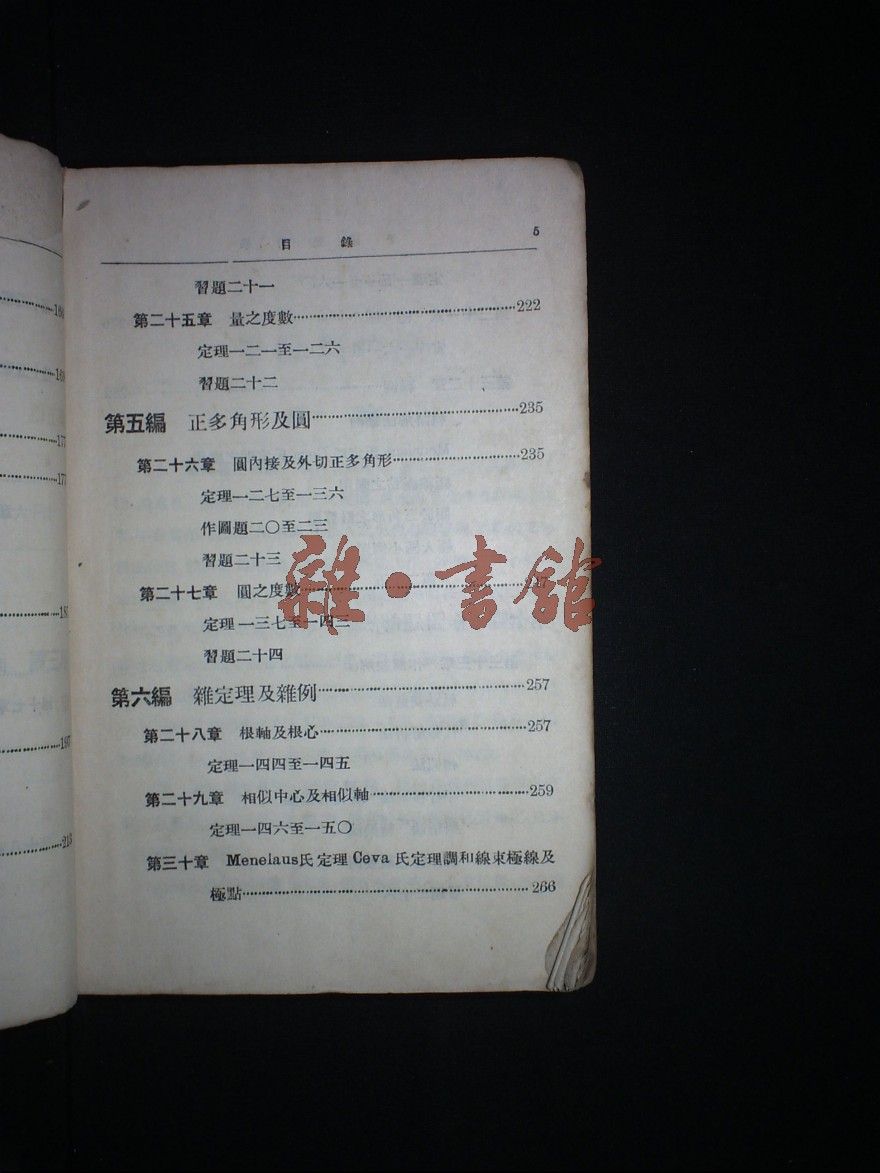 目錄 5
習題二十一
第二十五章 量之度數……222
定理一二一至一二六
習題二十二
第五編 正多角形及圓……235
第二十六章 圓內接及外切正多角形……235
定理一二七至一三六
作圖題二〇至二三
習題二十三
雜·書館
第二十七章 圓之度數
定理一三七至一四三
習題二十四
第六編 雜定理及雜例……257
第二十八章 根軸及根心……257
定理一四四至一四五
第二十九章 相似中心及相似軸……259
定理一四六至一五〇
第三十章 Menelaus氏定理 Ceva 氏定理調和線束極線及
極點……266